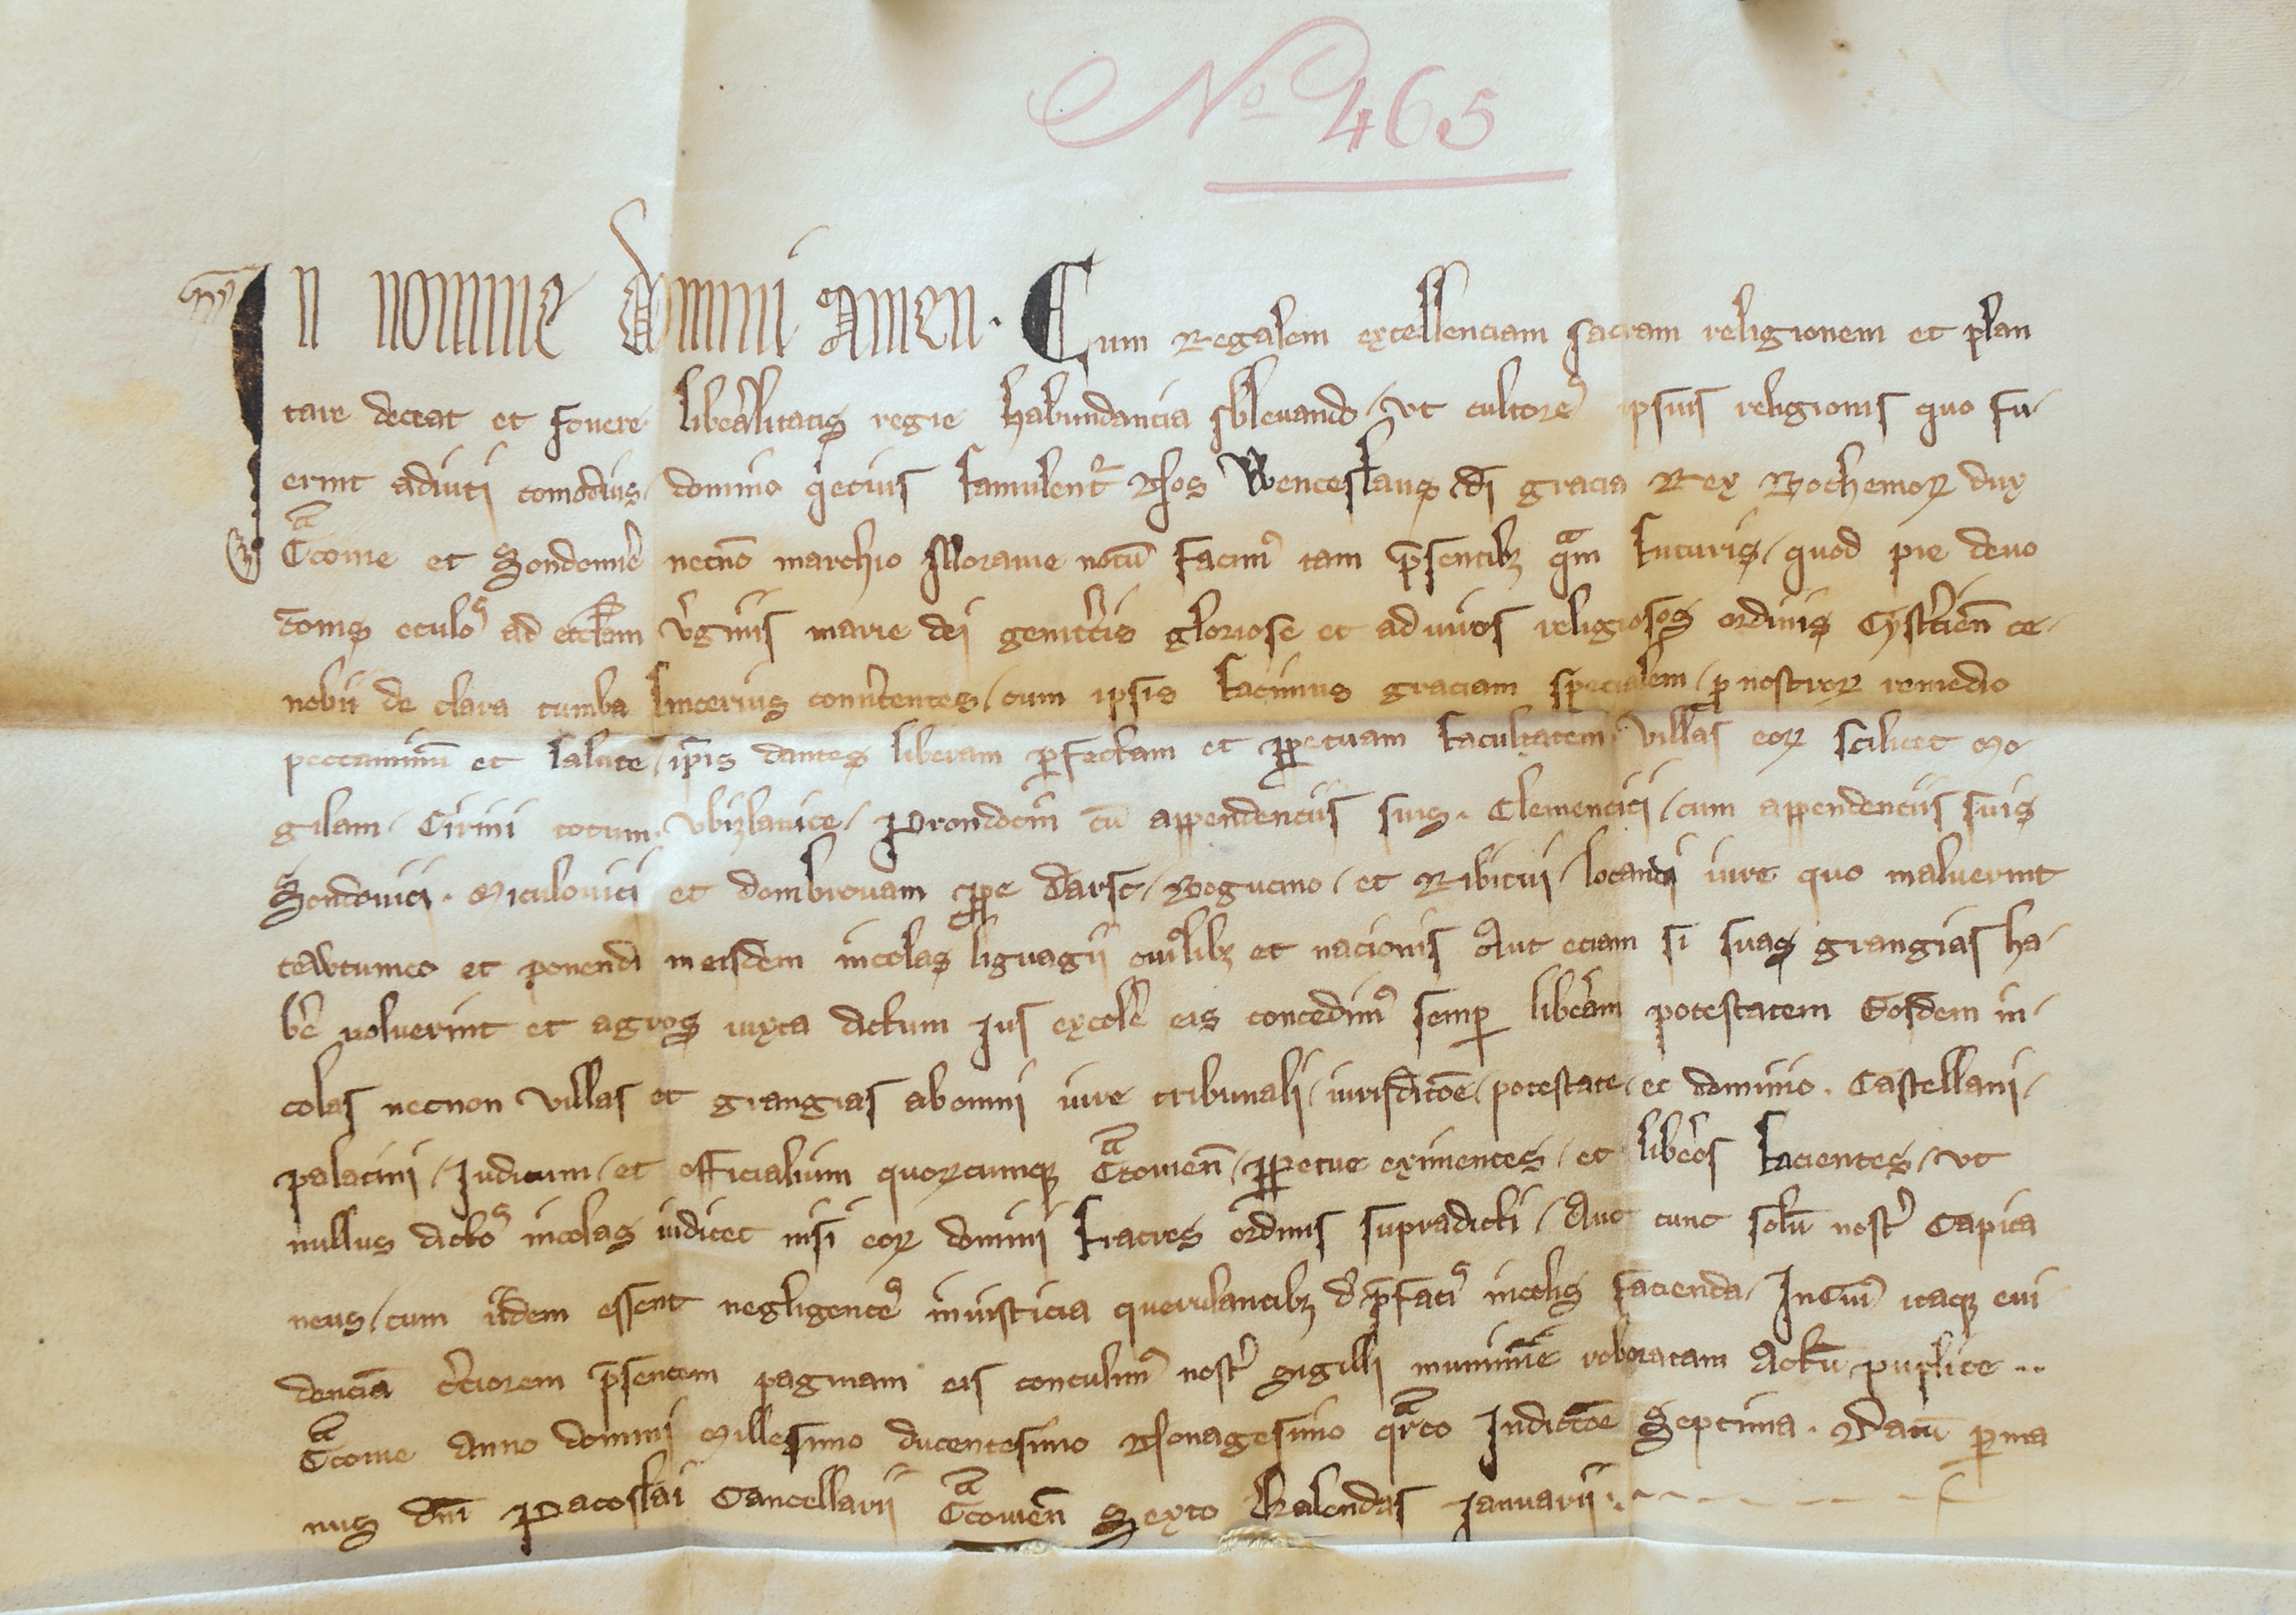 No 465
In nomine domini amen. Cum Regalem excellenciam sacram religionem et plan
tare deceat et fovere libe͛alitatis regie habundancia sbleuando / vt cultore᷒ ipsius religionis quo fu-
erint adiuti comodius / domino q̇etius famulent᷑ Nos Wenceslaus di gracia Rex Bohemoꝝ dux
Cͣcouie et Sendomiꝛ̄ necno͞ marchio Morauie notu͞ facimꝰ tam p͞sentibꝫ qͣm futuris / quod pie deuo
tionis oculo᷒ ad eccl̄am v͛ginis marie dei genitͥcis gloriose et ad viros religiosos ordinis Cyst͛cien͞ ce-
nobii de clara tumba sincerius conu͛tentes / cum ipsis facimus graciam specialem / ꝓ nostroꝝ remedio
peccaminu͞ et salute / ip̄is dantes liberam ꝑfectam et ꝑpetuam facultatem / villas eoꝝ scilicet Mo-
gilam / Cirini totum / vbizlauice / Prondocin cu͞ appendenciis suis . Clemencici / cum appendenciis suis
Sendouici . Miculouici et dombrouam ꝓpe d͛arst / Bogucino / et Ribitui / locandi iure quo maluerint
tewtunico et ponendi in eisdem incolas liguagii cuiꝰlibꝫ et nacionis Aut eciam si suas grangias ha-
be͛ voluerint et agros iuxta dictum jus excole͛ eis concedimꝰ semꝑ libe͛am potestatem Eosdem in-
colas necnon villas et grangias ab omni iure tribunali / iurisdic͞o͞e / potestate / et dominio . Castellani /
palatini / Judicum / et officialium quoꝝcumqꝫ Cͣcouien͞ / ꝑpetue eximentes / et libe͛os facientes / vt
nullus dicto᷒ incolas iudicet nisi eoꝝ domini fratres ordinis supradicti / Aut tunc solu͞ nost͛ Capita
neus / cum iidem essent negligente᷒ in iusticia querulantibꝫ d͛ p͞fati᷒ incolis facienda / In Cuiꝰ itaqꝫ eui
dencia͞ c͛ciorem p͞sentem paginam eis contulimꝰ nost͛ sigilli munimi͞e roboratam Actu͞ puplice ..
Cͣcouie Anno domini Millesimo ducentesimo Nonagesimo qͣrto Indicc͞o͞e Septima . Datu͞ ꝑ ma
nus dn͞i Pacoslai Cancellarii Cͣcouien͞ Sexto Kalendas Januarii .